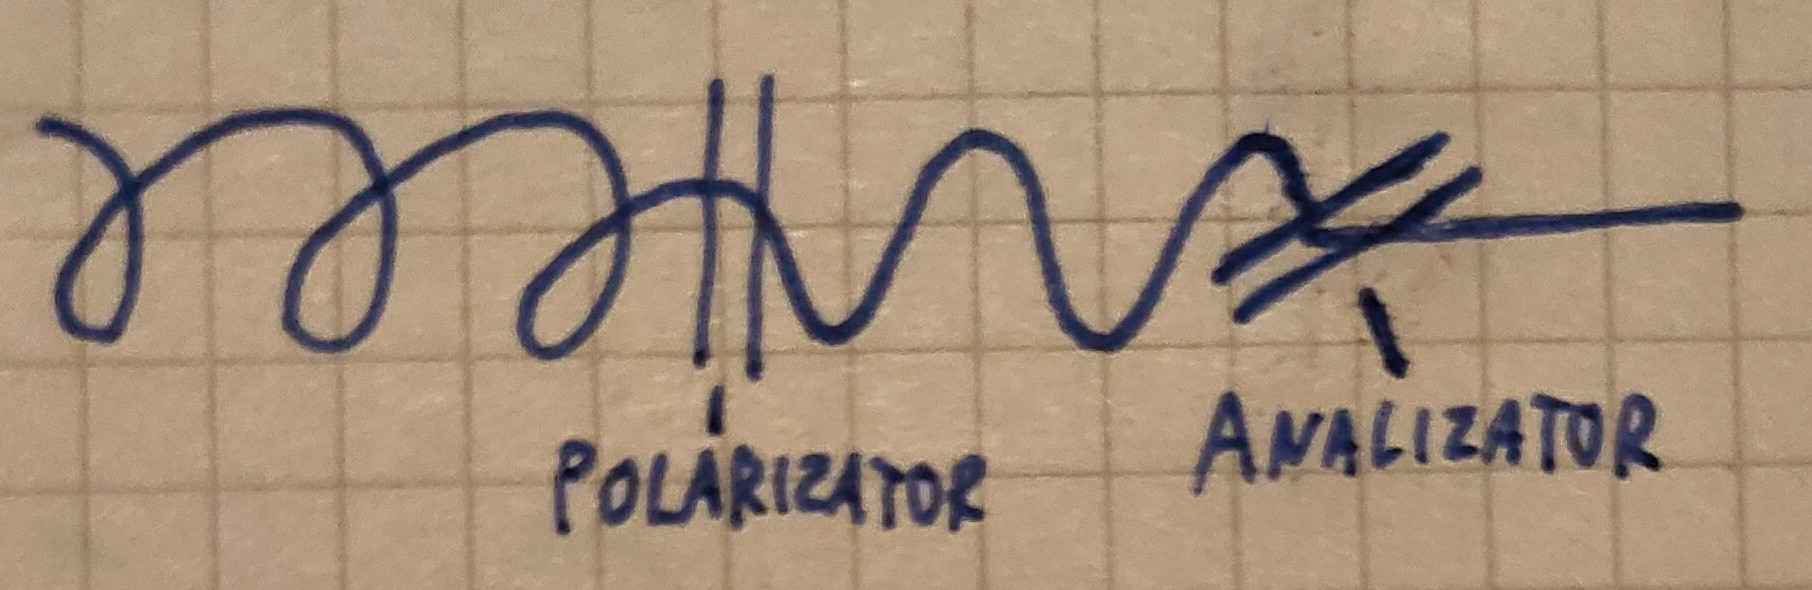 POLARIZATOR
ANALIZATOR